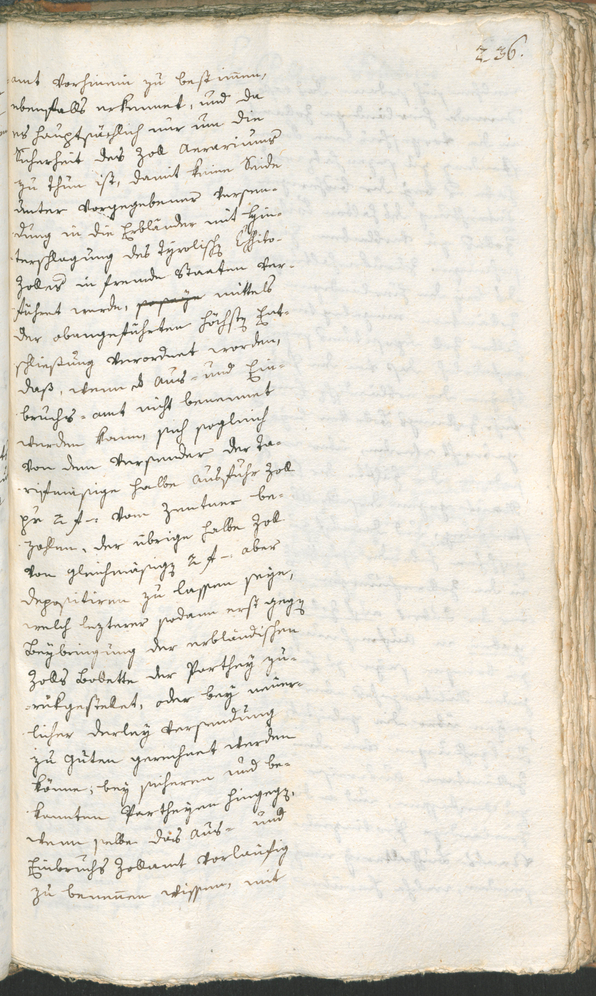 236.
amt vorhinein zu bestimen,
ebenfalls erkennet, und da
es hauptsächlich nur um die
Sicherheit des Zoll Aerariums
zu thun ist, damit keine Seide
unter vorgegebener Versen-
dung in die Erbländer mit Hin-
terschlagung des tyrolisch Essito-
Zolles in fremde Staaten ver-
führet werde, mittels
der obangeführten höchst Ent-
schließung verordnet worden,
daß, wenn das Aus- und Ein-
bruchs-amt nicht benennet
werden kann, sich sogleich
von dem Versender der ta-
rifmäsige halbe Ausfuhr Zoll
pr 2 f -: vom Zentner be-
zahlen, der übrige halbe Zoll
von gleichmäsig 2 f -: aber
depositiren zu lassen seye,
welch lezterer sodann erst gegen
Beybringung der erbländischen
Zolls Bolette der Parthey zu-
rükgestellet, oder bey neuer-
licher derley Versendung
zu guten gerechnet werden
könne; bey sicheren und be-
kannten Partheyen hingegen,
wenn selbe das Aus- und
Einbruchs Zollamt vorläufig
zu benennen wissen, mit